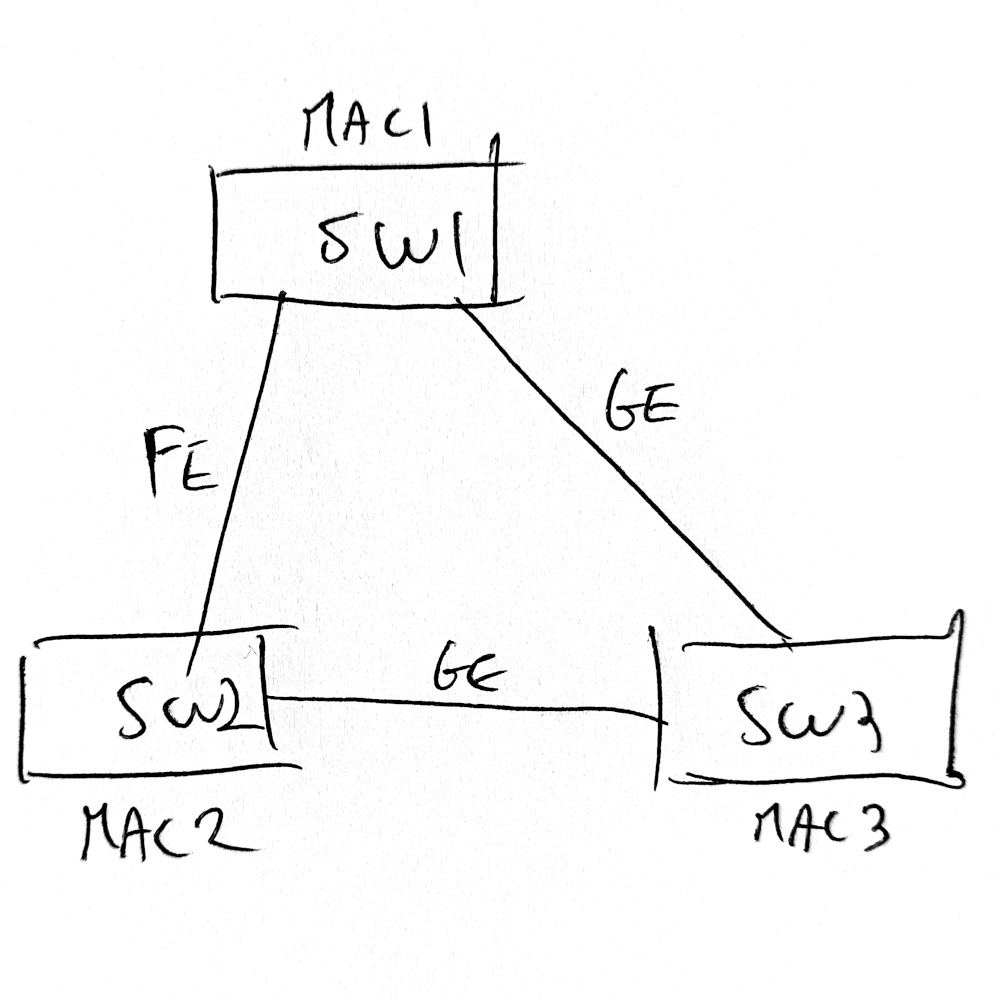 MAC1
SW1
GE
FE
GE
SW2
SW3
MAC2
MAC3